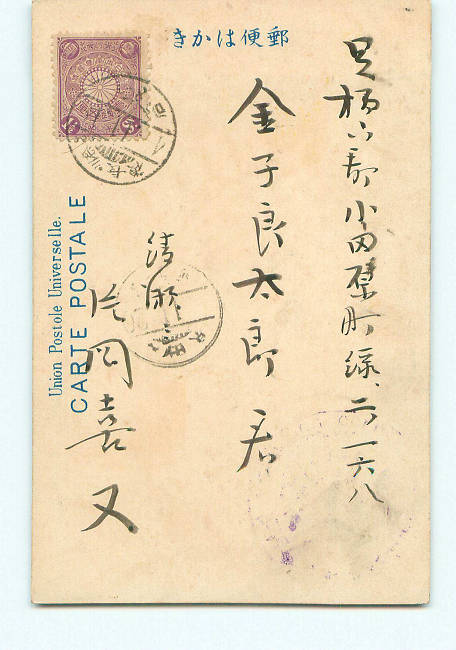 郵便はかき
足柄下郡小田原町緑、二一六八
金子良太郎君
片岡喜又
Union Postale Universelle.
CARTE POSTALE